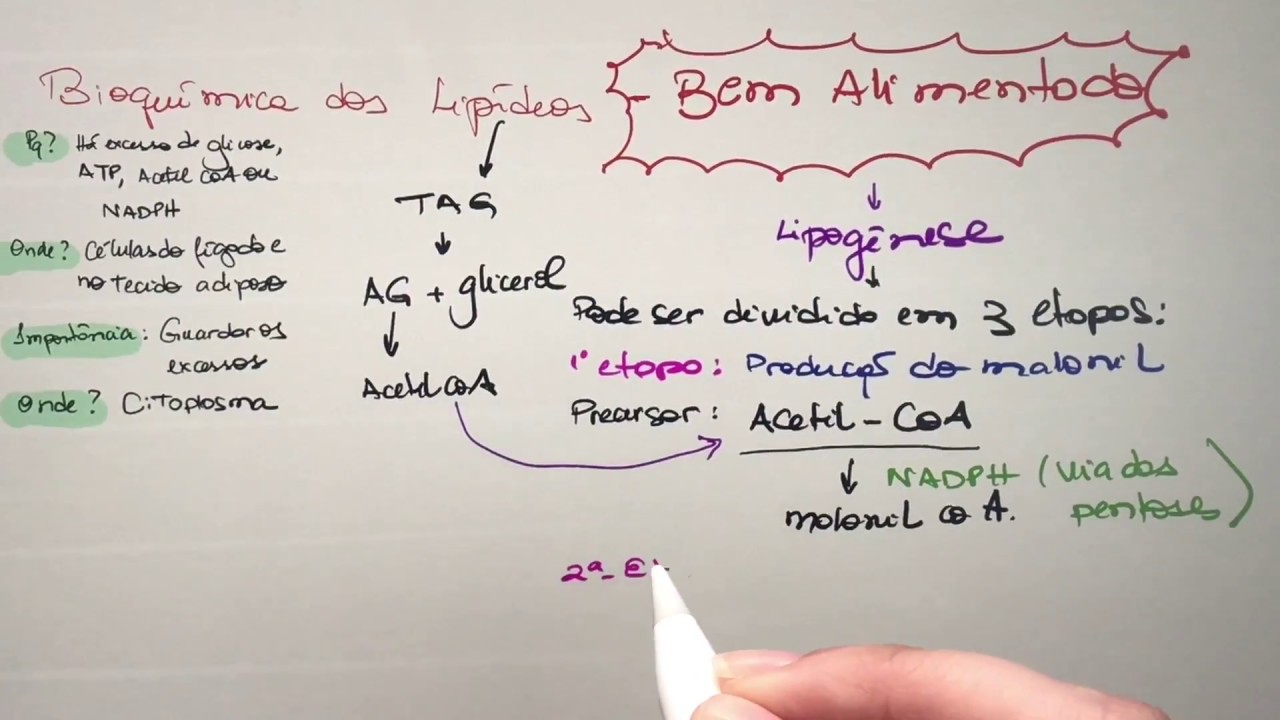 Bioquímica dos Lipídeos
- Bem Alimentado
Pq? Há excesso de glicose,
ATP, Acetil coA ou
NADPH
Onde? Células do fígado e
no tecido adiposo
Importância: Guardar os
excessos
Onde? Citoplasma
TAG
AG + glicerol
Acetil coA
Lipogênese
Pode ser dividido em 3 etapas:
1ª etapa: Produção do malonil
Precursor: Acetil - CoA
NADPH (via das
pentoses)
malonil co A.
2ª- Et